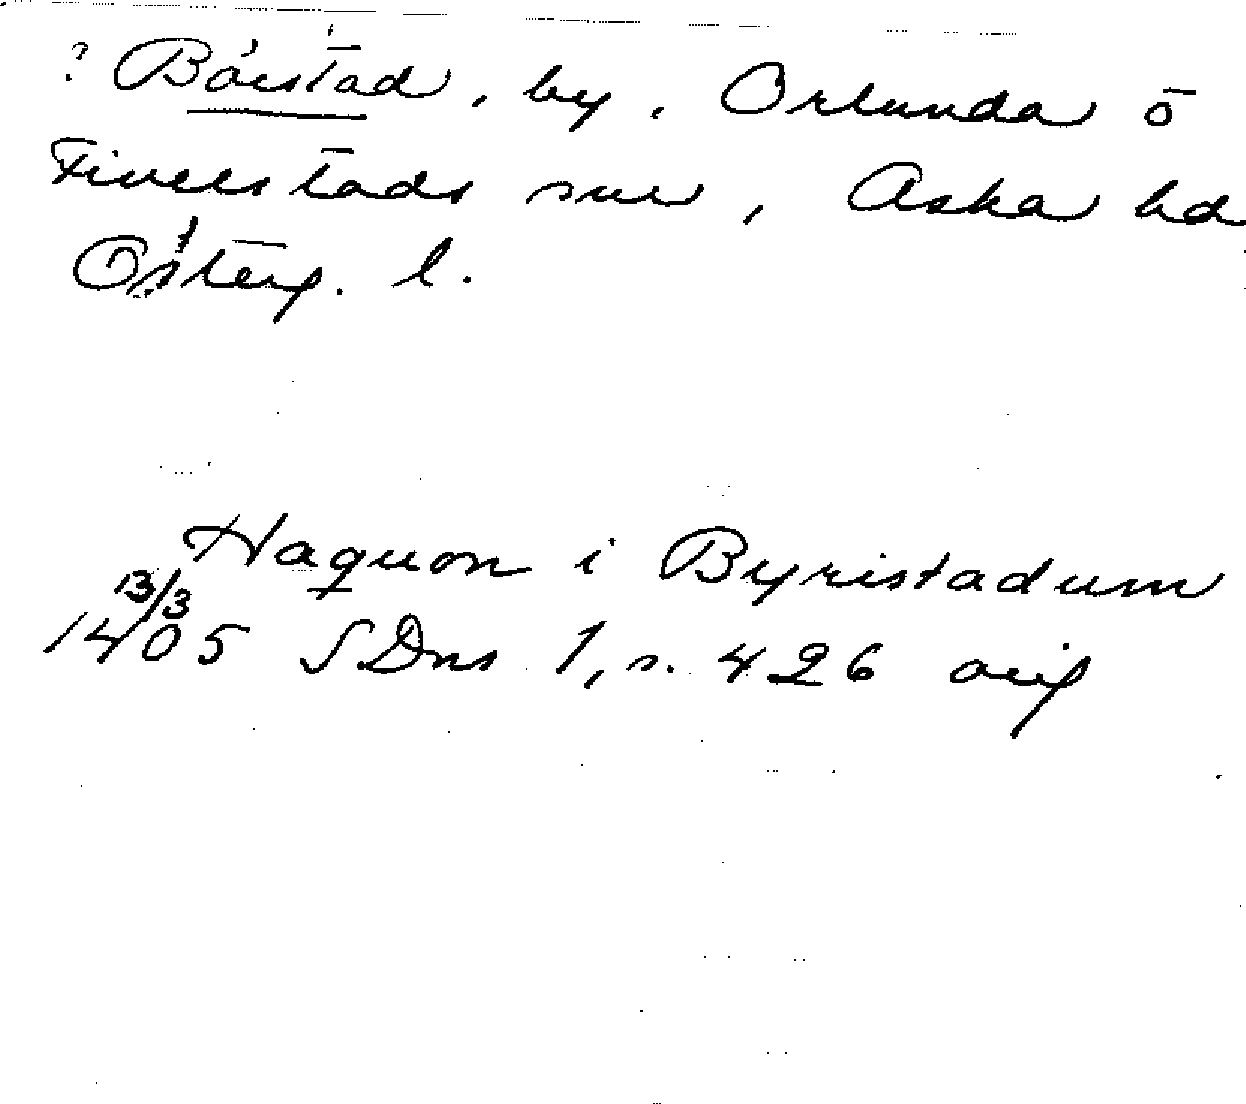 ? Börstad, by, Orlunda o
Fivelstads snr, Aska hd
Österg. l.
Haquon i Byristadum
13/3
1405 SDns 1, s. 426 orig